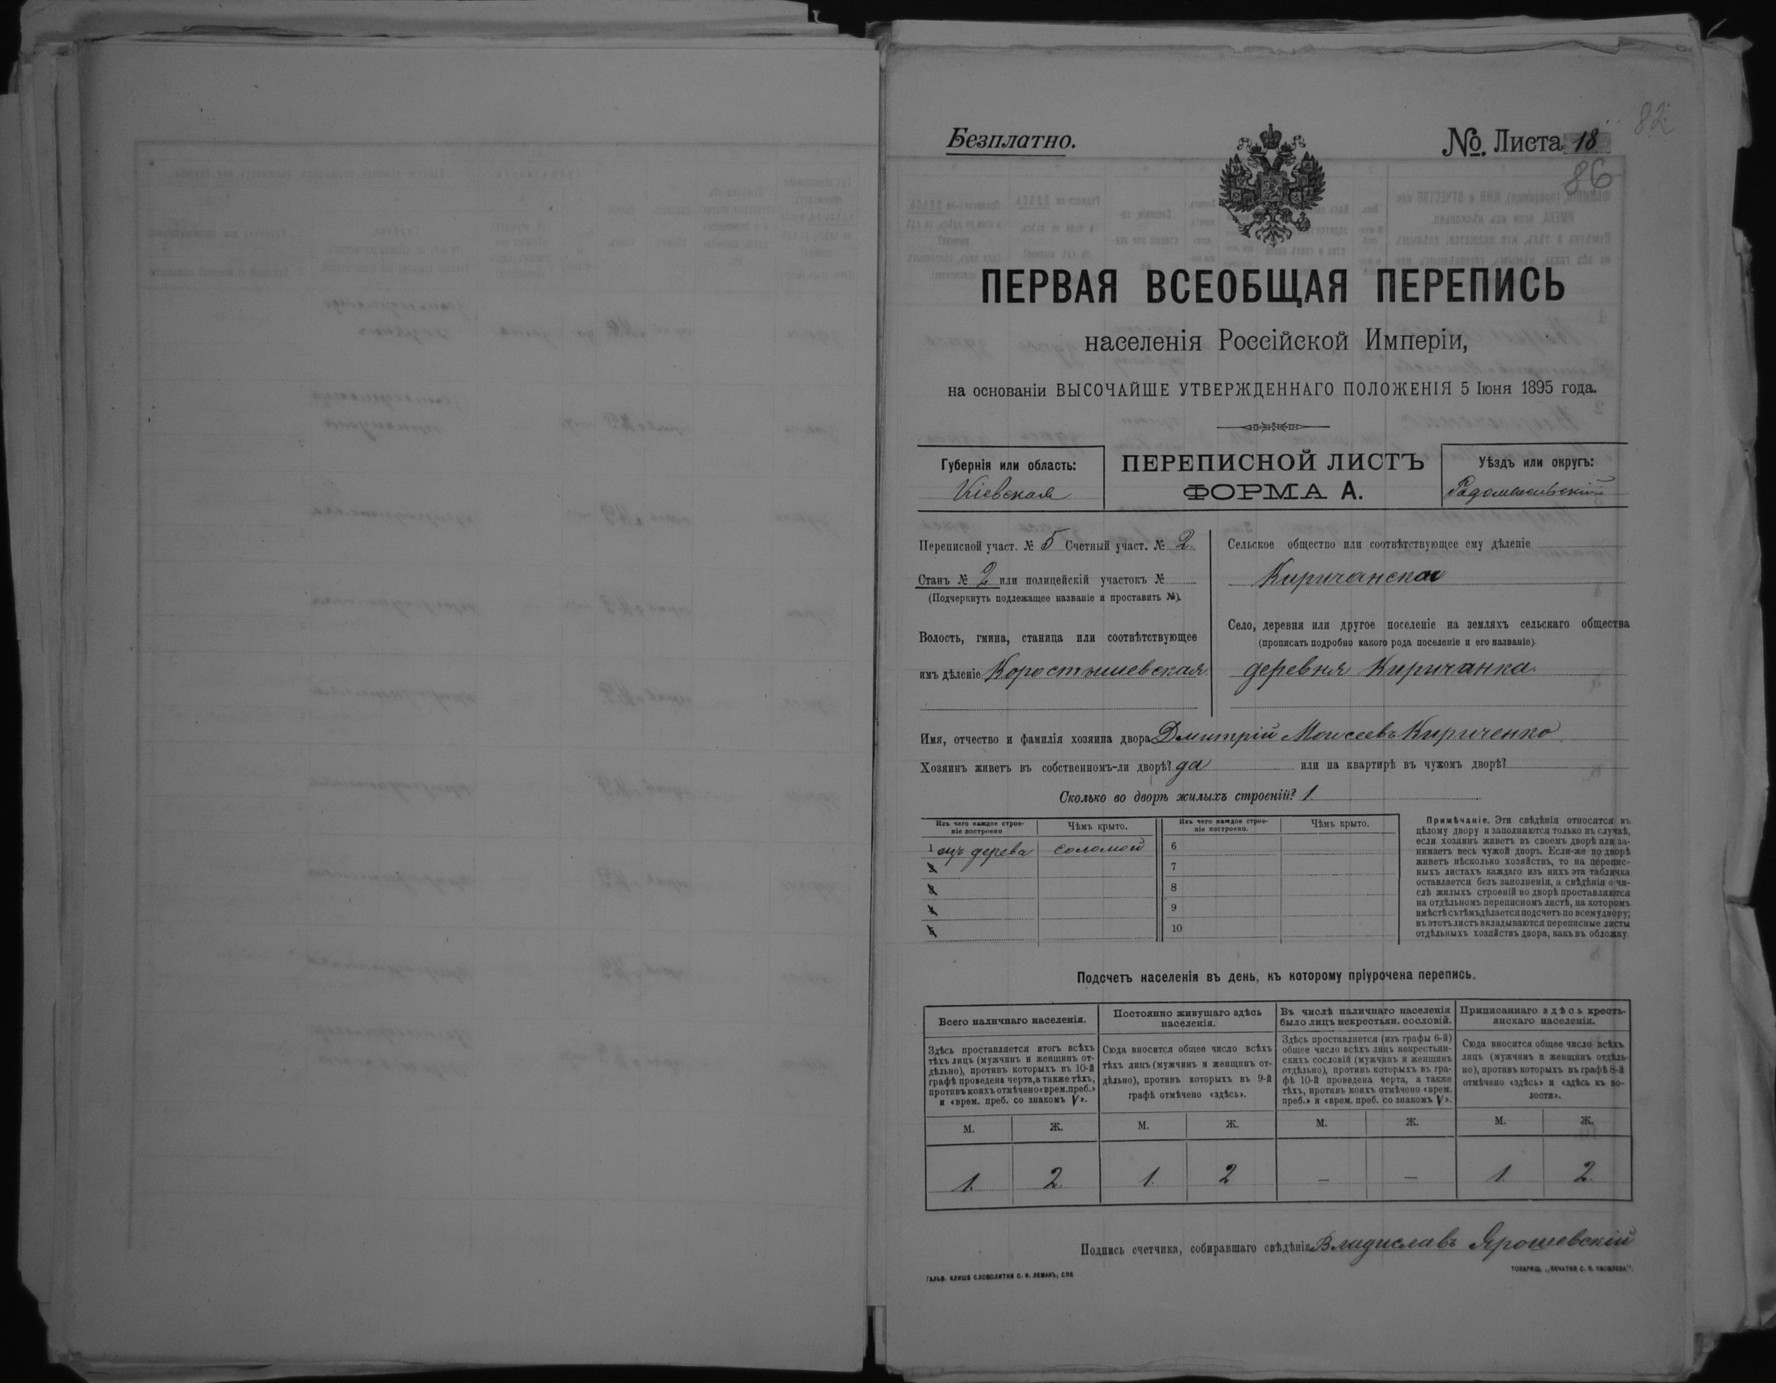 Безплатно.
№. Листа 18
82
86
ПЕРВАЯ ВСЕОБЩАЯ ПЕРЕПИСЬ
населенія Россійской Имперіи,
на основаніи ВЫСОЧАЙШЕ УТВЕРЖДЕННАГО ПОЛОЖЕНІЯ 5 Іюня 1895 года.
Губернія или область:
Кіевская
ПЕРЕПИСНОЙ ЛИСТЪ
ФОРМА А.
Уѣздъ или округъ:
Радомысльскій
Переписной участ. № 5 Счетный участ. № 2.
Станъ № 2 или полицейскій участокъ №
(Подчеркнуть подлежащее названіе и проставить №).
Волость, гмина, станица или соотвѣтствующее
имъ дѣленіе Коростышевская
Сельское общество или соотвѣтствующее ему дѣленіе
Киричанское
Село, деревня или другое поселеніе на земляхъ сельскаго общества
(прописать подробно какого рода поселеніе и его названіе)
деревня Киричанка
Имя, отчество и фамилія хозяина двора Дмитрій Моисеевъ Кириченко
Хозяинъ живетъ въ собственномъ-ли дворѣ? да или на квартирѣ въ чужомъ дворѣ?
Сколько во дворѣ жилыхъ строеній? 1.
Изъ чего каждое строе-
ніе построено
Чѣмъ крыто.
1 изъ дерева соломой
2
3
4
5
Изъ чего каждое строе-
ніе построено.
Чѣмъ крыто.
6
7
8
9
10
Примѣчаніе. Эти свѣдѣнія относятся къ
цѣлому двору и заполняются только въ случаѣ,
если хозяинъ живетъ въ своемъ дворѣ или за-
нимаетъ весь чужой дворъ. Если-же во дворѣ
живетъ нѣсколько хозяйствъ, то на перепис-
ныхъ листахъ каждаго изъ нихъ эта табличка
оставляется безъ заполненія, а свѣдѣнія о чи-
слѣ жилыхъ строеній во дворѣ проставляются
на отдѣльномъ переписномъ листѣ, на которомъ
вмѣстѣ съ тѣмъ дѣлается подсчетъ по всему двору;
въ этотъ листъ вкладываются переписные листы
отдѣльныхъ хозяйствъ двора, какъ въ обложку.
Подсчетъ населенія въ день, къ которому пріурочена перепись.
Всего наличнаго населенія.
Здѣсь проставляется итогъ всѣхъ
тѣхъ лицъ (мужчинъ и женщинъ от-
дѣльно), противъ которыхъ въ 10-й
графѣ проведена черта, а также тѣхъ,
противъ коихъ отмѣчено «врем. преб.»
и «врем. преб. со знакомъ V».
М. Ж.
1. 2.
Постоянно живущаго здѣсь
населенія.
Сюда вносится общее число всѣхъ
тѣхъ лицъ (мужчинъ и женщинъ от-
дѣльно), противъ которыхъ въ 9-й
графѣ отмѣчено «здѣсь».
М. Ж.
1. 2
Въ числѣ наличнаго населенія
было лицъ некрестьян. сословій.
Здѣсь проставляется (изъ графы 6-й)
общее число всѣхъ лицъ некрестьян-
скихъ сословій (мужчинъ и женщинъ
отдѣльно), противъ которыхъ въ гра-
фѣ 10-й проведена черта, а также
тѣхъ, противъ коихъ отмѣчено «врем.
преб.» и «врем. преб. со знакомъ V».
М. Ж.
– –
Приписаннаго здѣсь кресть-
янскаго населенія.
Сюда вносится общее число всѣхъ
лицъ (мужчинъ и женщинъ отдѣль-
но), противъ которыхъ въ графѣ 8-й
отмѣчено «здѣсь» и «здѣсь къ во-
лости».
М. Ж.
1. 2.
Подпись счетчика, собиравшаго свѣдѣнія Владиславъ Ярошевскій
ГАЛЬВ. КЛИШЕ СЛОВОЛИТНИ О. И. ЛЕМАНЪ, СПБ
ТОВАРИЩ. „ПЕЧАТНЯ С. П. ЯКОВЛЕВА".